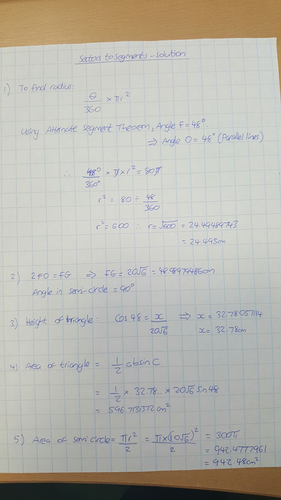 Sectors to Segments - Solution
1) To find radius:
θ/360 × πr²
Using Alternate Segment Theorem, Angle F = 48°
⇒ Angle O = 48° (Parallel lines)
∴ 48°/360° × π × r² = 80π
r² = 80 ÷ 48/360
r² = 600 ∴ r = √600 = 24.49489743
= 24.495cm
2) 2FO = FG ⇒ FG = 20√6 = 48.98979486cm
Angle in semi-circle = 90°
3) Height of triangle: Cos 48 = x/20√6 ⇒ x = 32.78051114
x = 32.78cm
4) Area of triangle = 1/2 absin C
= 1/2 × 32.78... × 20√6 Sin 48
= cm²
5) Area of semi circle = πr²/2 = π×(10√6)²/2 = 300π
= 942.4777961
= 942.48cm²